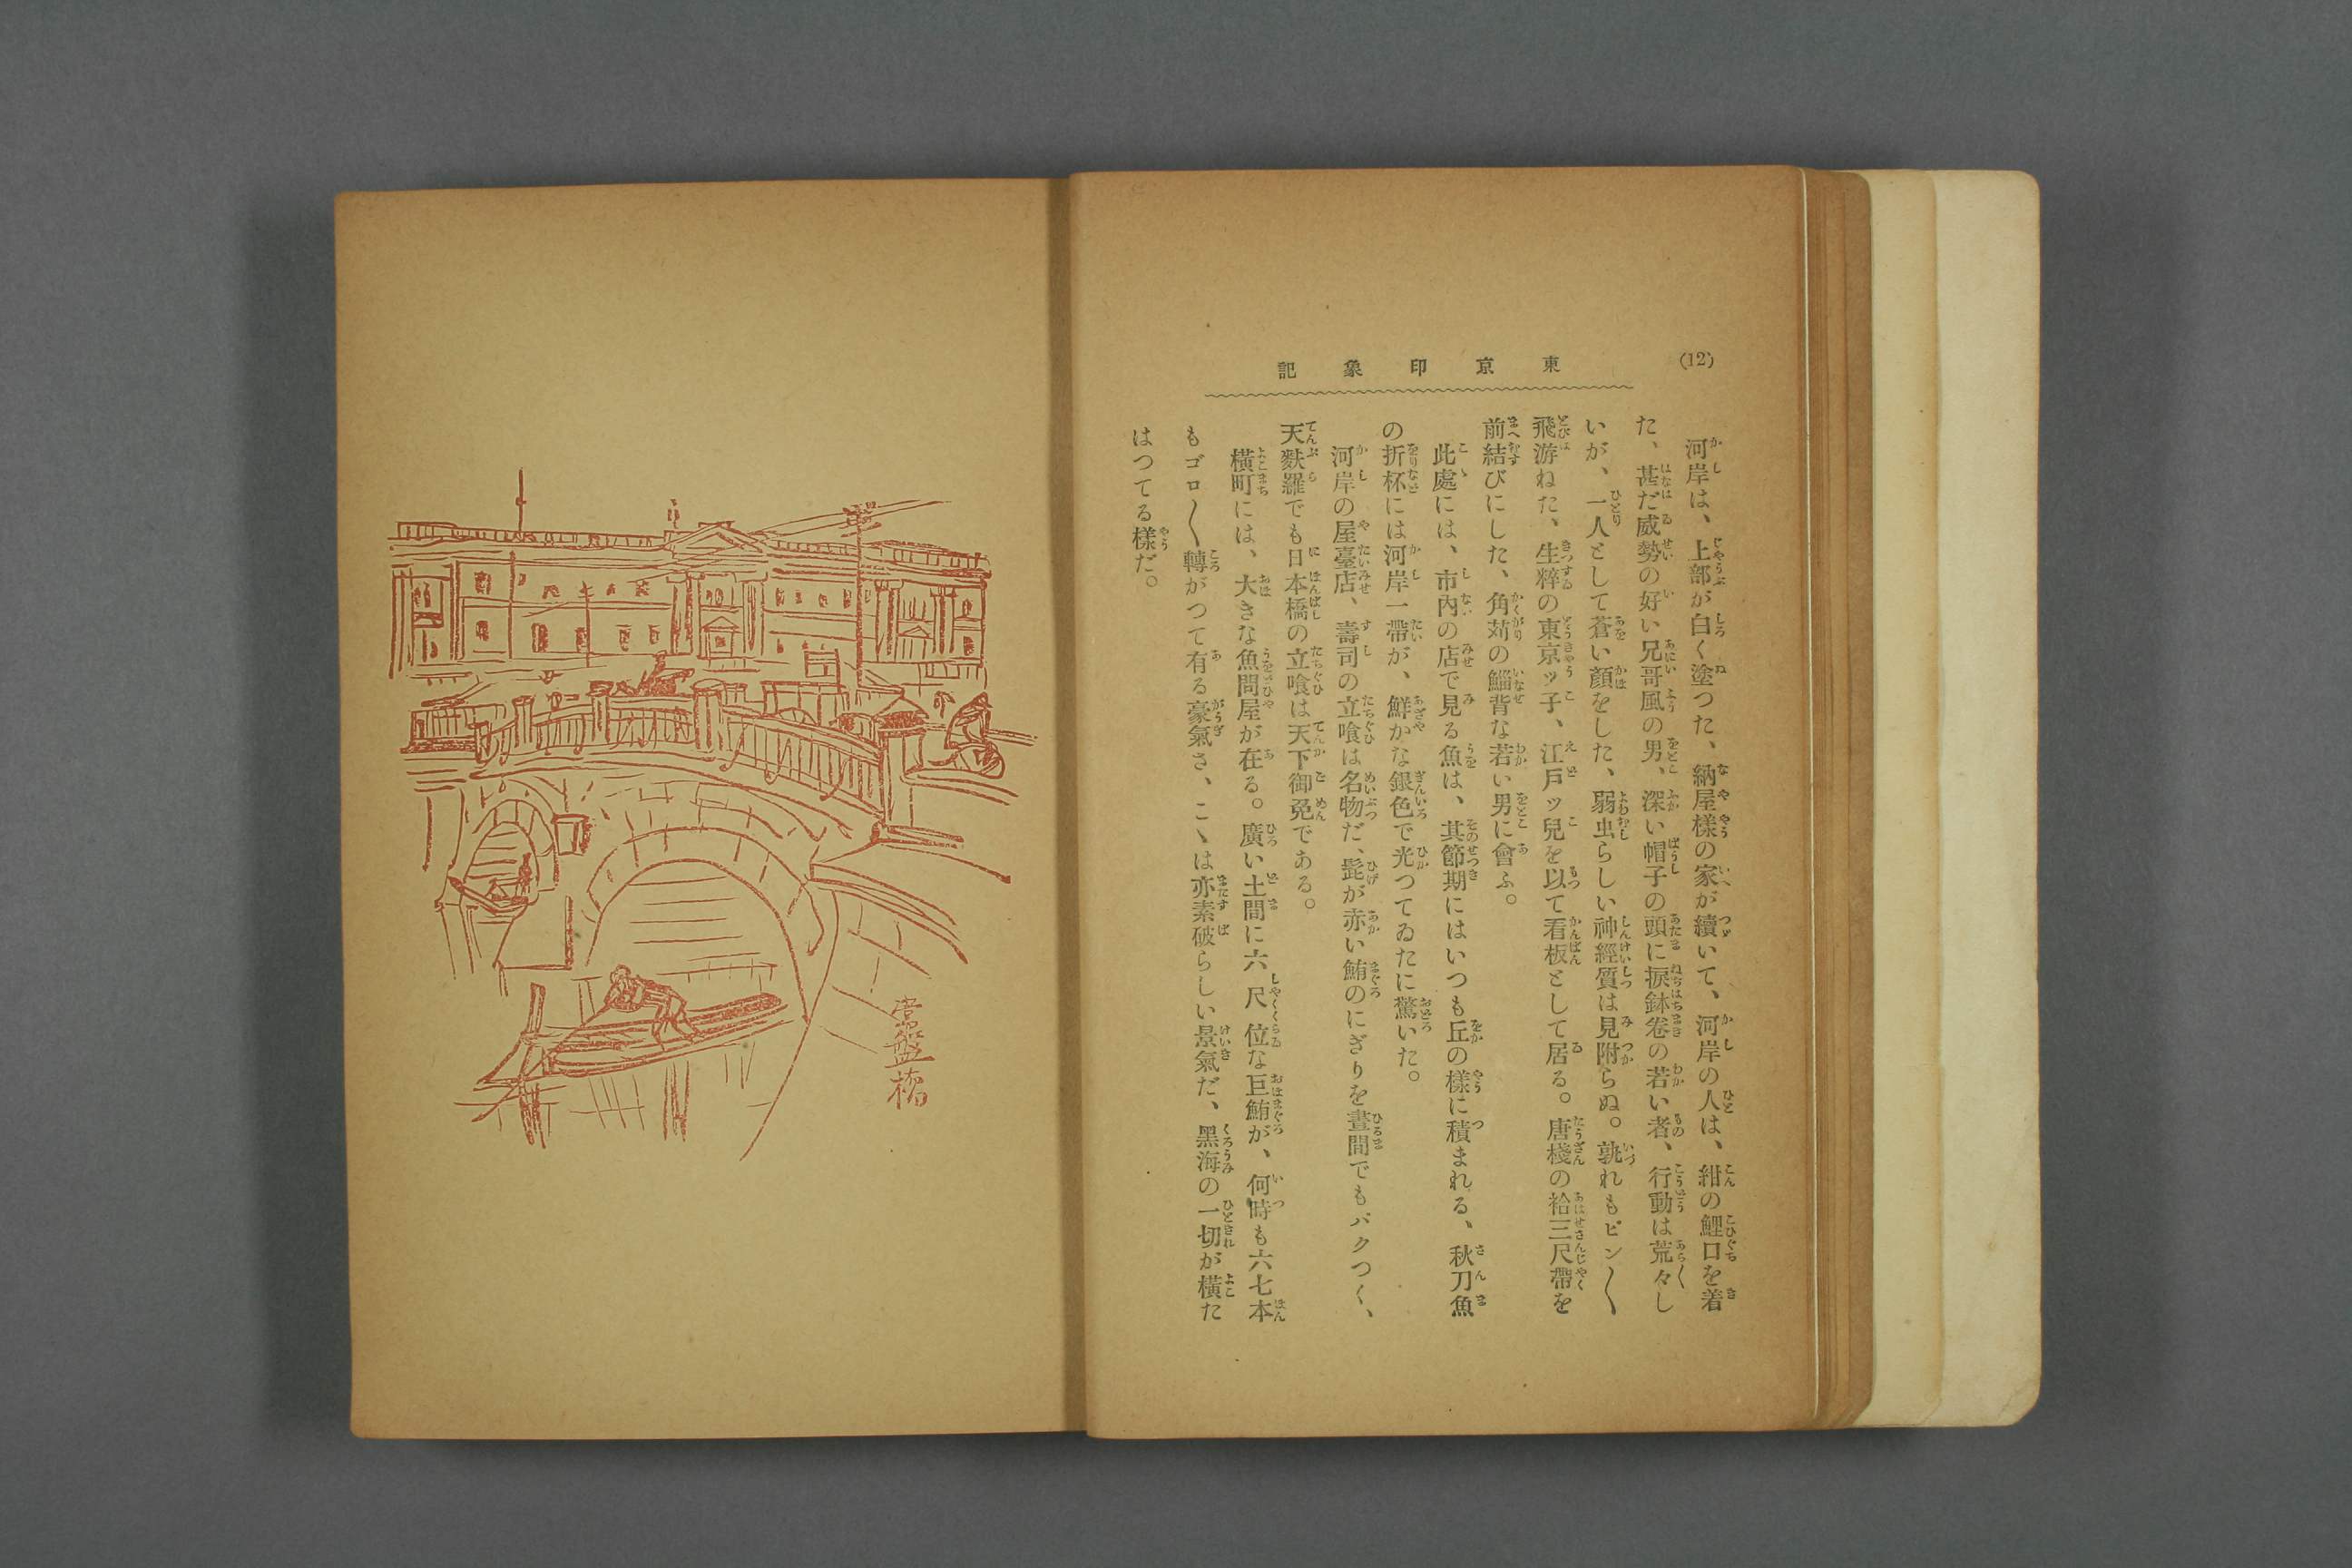 (12)
東京印象記
河岸は、上部が白く塗つた、納屋樣の家が續いて、河岸の人は、紺の鯉口を着
た、甚だ威勢の好い兄哥風の男、深い帽子の頭に捩鉢卷の若い者、行動は荒々し
いが、一人として蒼い顏をした、弱虫らしい神經質は見附らぬ。孰れもピン〱
飛游ねた、生粹の東京ッ子、江戸ッ兒を以て看板として居る。唐棧の袷三尺帶を
前結びにした、角苅の鯔背な若い男に會ふ。
此處には、市內の店で見る魚は、其節期にはいつも丘の樣に積まれる、秋刀魚
の折杯には河岸一帶が、鮮かな銀色で光つてゐたに驚いた。
河岸の屋臺店、壽司の立喰は名物だ、髭が赤い鮪のにぎりを晝間でもパクつく、
天麩羅でも日本橋の立喰は天下御免である。
橫町には、大きな魚問屋が在る。廣い土間に六尺位な巨鮪が、何時も六七本
もゴロ〱轉がつて有る豪氣さ、こゝは亦素破らしい景氣だ、黑海の一切が橫た
はつてる樣だ。
常盤橋